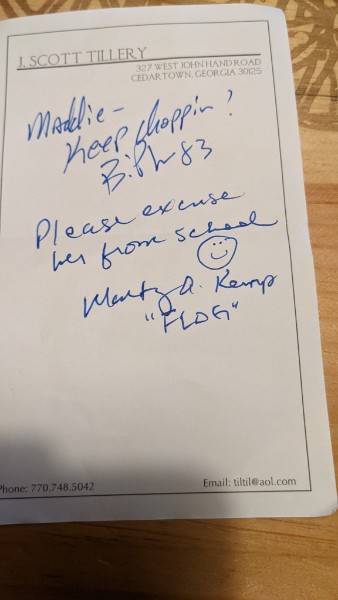 J. SCOTT TILLERY
327 WEST JOHN HAND ROAD
CEDARTOWN, GEORGIA 30125
Maddie -
Keep choppin!
83
Please excuse
her from school
Marty A. Kemp
"FLOG"
Phone: 770.748.5042
Email: tiltil@aol.com